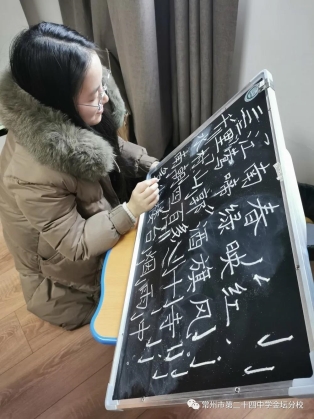 三江南春
千里莺啼绿映红
水村山郭酒旗风
南朝四百八十寺
台烟雨中
常州市第二十四中学金坛分校